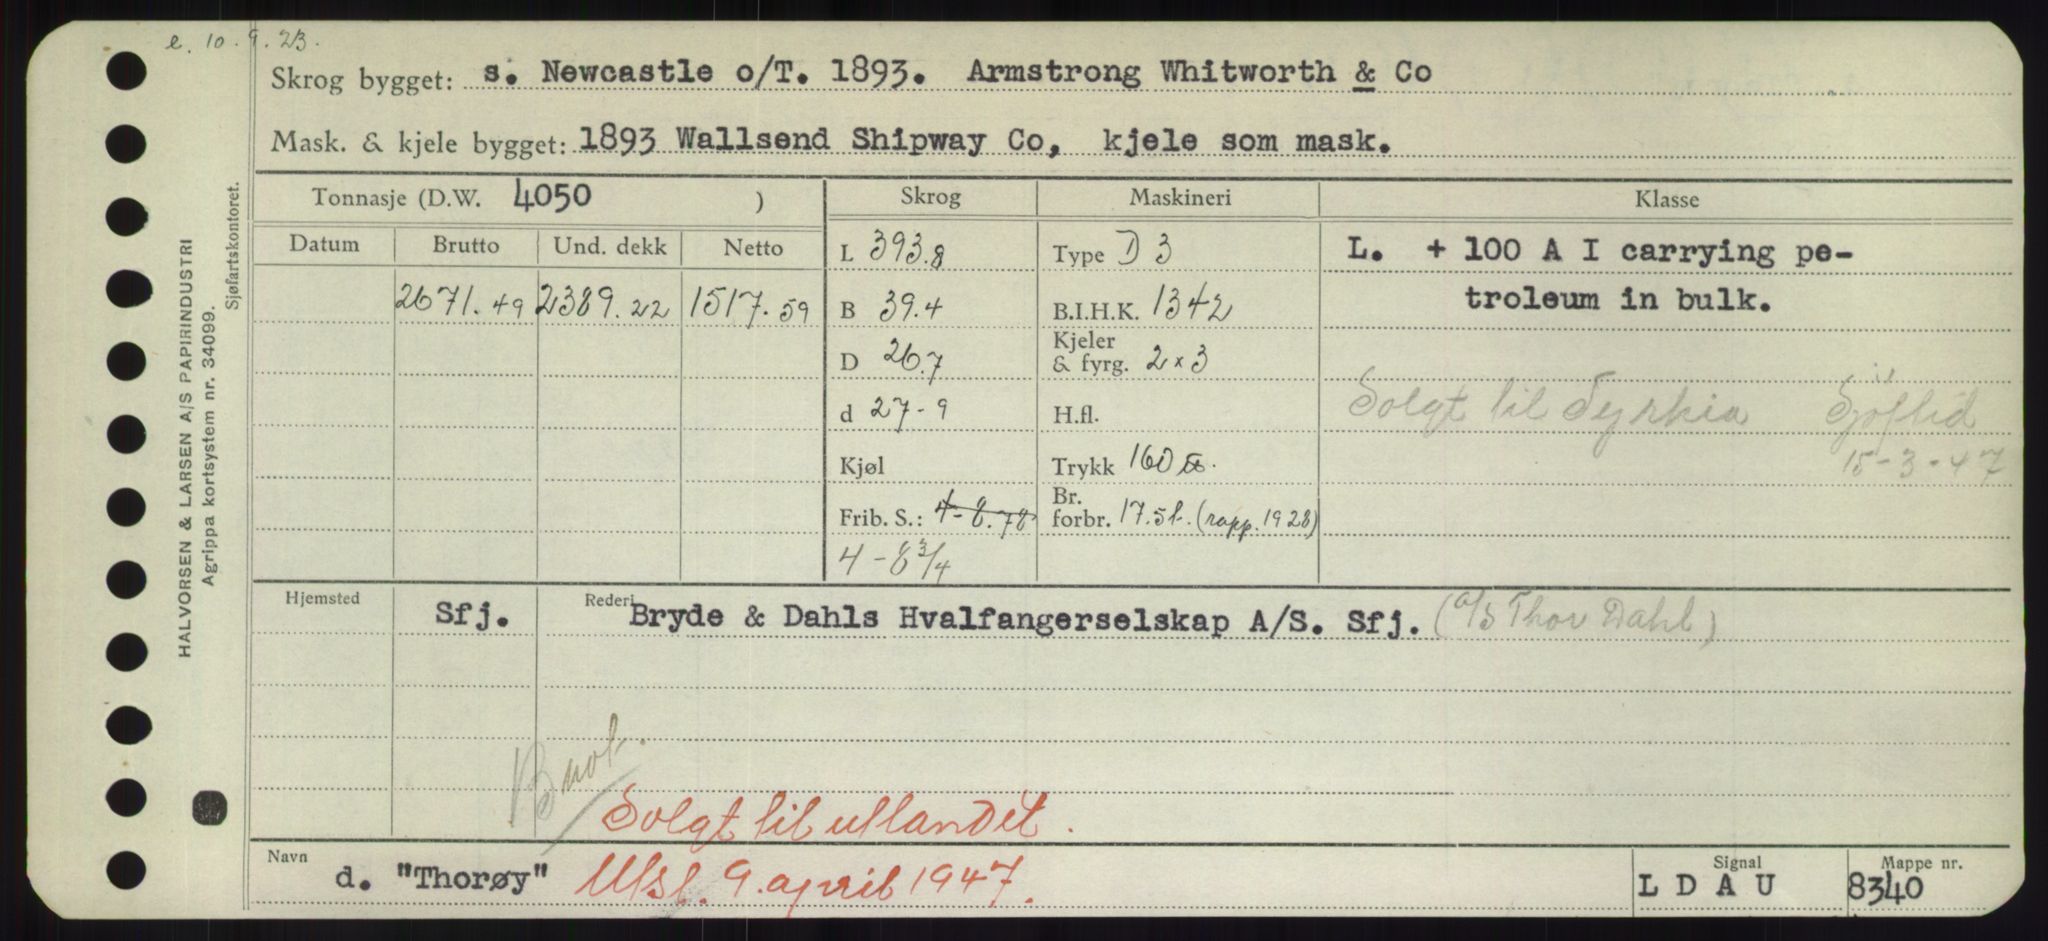 e. 10.9.23.
Skrog bygget: s. Newcastle o/T. 1893. Armstrong Whitworth & Co
Mask. & kjele bygget: 1893 Wallsend Shipway Co, kjele som mask.
Tonnasje (D.W. 4050 ) Skrog Maskineri Klasse
Datum Brutto Und. dekk Netto
L 393.8 Type D 3 L. + 100 A I carrying pe-
2671.49 2389.22 1517.59 B 39.4 B.I.H.K. 1342 troleum in bulk.
D 26.7 Kjeler & fyrg. 2 x 3
d 27-9 H.fl. Solgt til Tyrkia Sjöftid
Kjøl Trykk 160 15-3-47
Frib. S.: 4-8.78 Br. forbr. 17.5t. (rapp. 1928)
4-8 3/4
Hjemsted Sfj. Rederi Bryde & Dahls Hvalfangerselskap A/S. Sfj. (A/S Thor Dahl)
Solgt til utlandet.
Navn d. "Thorøy" Utsl. 9. april 1947.
Signal LDAU
Mappe nr. 8340
HALVORSEN & LARSEN A/S PAPIRINDUSTRI
Agrippa kortsystem nr. 34099.
Sjøfartskontoret.